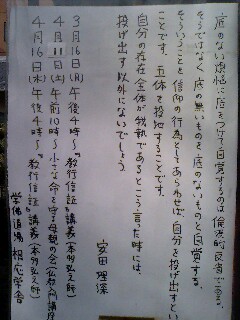 底のない煩悩に底をつけて自覚するのは倫理的反省である。
そうではなく底の無いものを底のないものと自覚する。
そういうことを信仰の行為としてあらわせば、自分を投げ出すという
ことです。五体を投地することです。
自分の存在全体が我執であるところ言った時には、
投げ出す以外にないでしょう。
安田理深
3月16日(月)午後4時〜教行信証講義(本多弘之師)
4月11日(土)午前10時〜小さな命を守る母親の会(仏教入門講座)
4月16日(木)午後4時〜教行信証講義(本多弘之師)
学仏道場 相応学舎